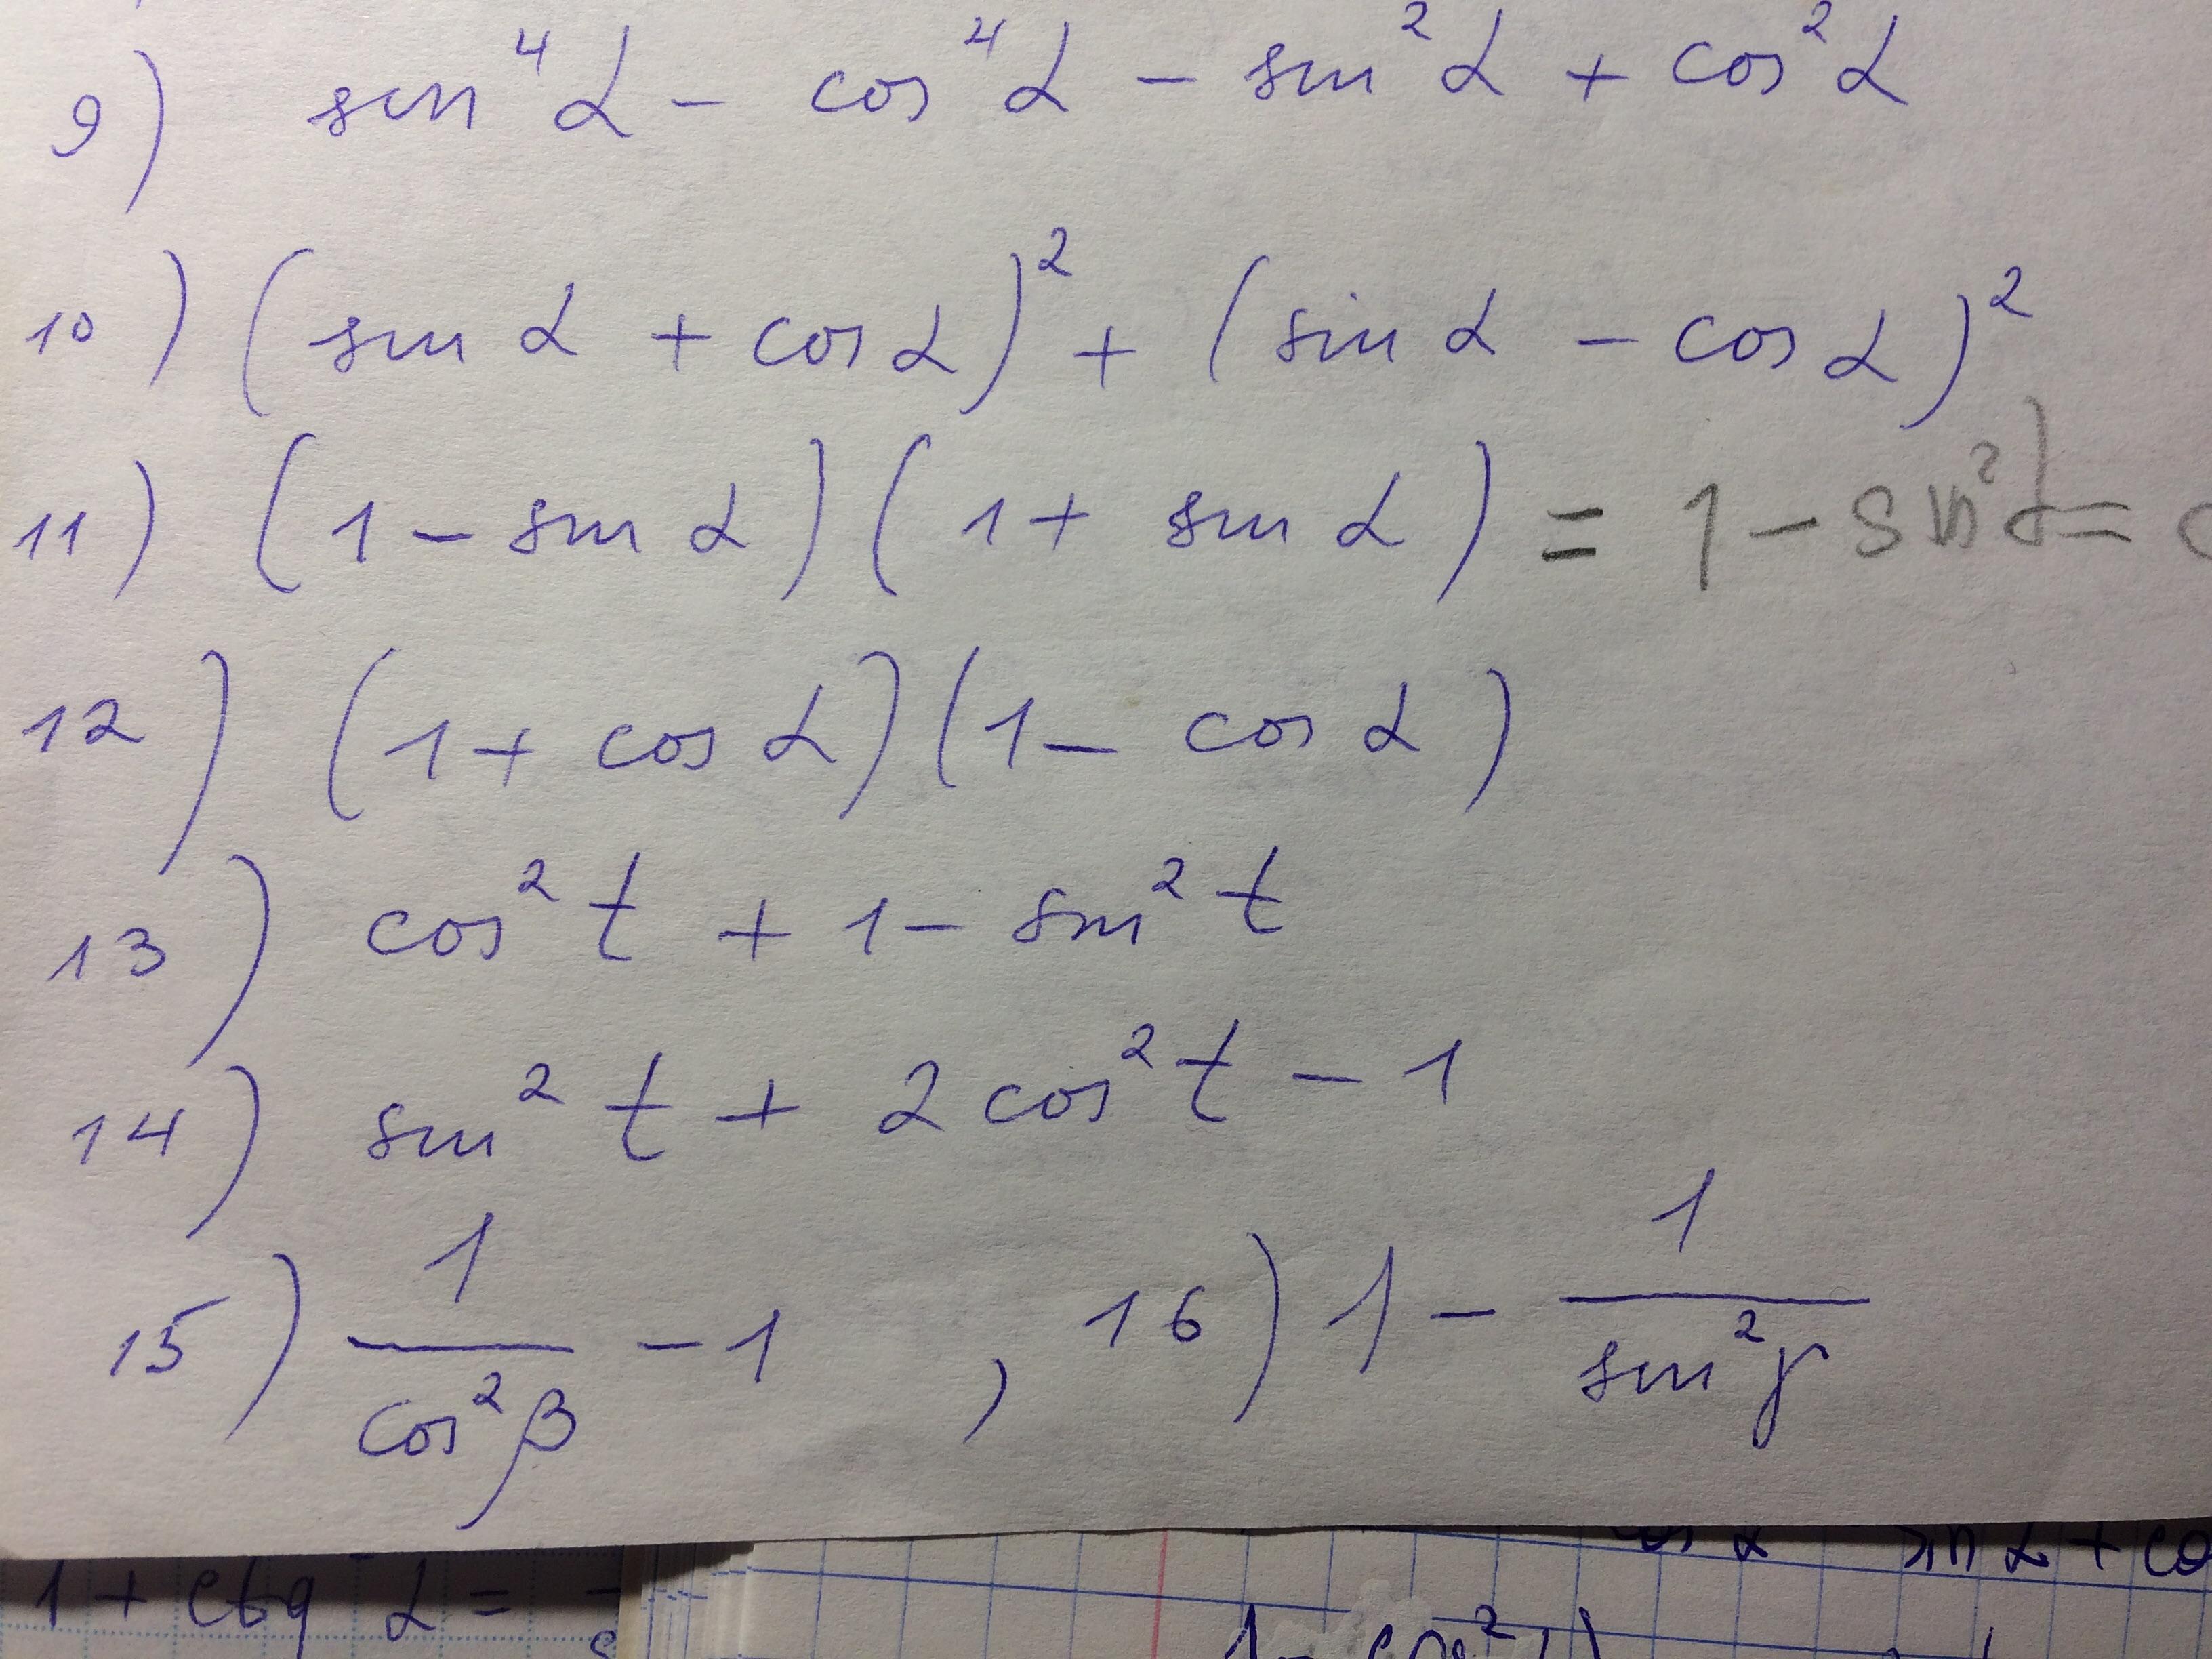 9) sin⁴α - cos⁴α - sin²α + cos²α
10) (sin α + cos α)² + (sin α - cos α)²
11) (1 - sin α)(1 + sin α) = 1 - sin²α =
12) (1 + cos α)(1 - cos α)
13) cos²t + 1 - sin²t
14) sin²t + 2cos²t - 1
15) 1/cos²β - 1 , 16) 1 - 1/sin²γ
cos α sin α + co
1 + ctg²α =